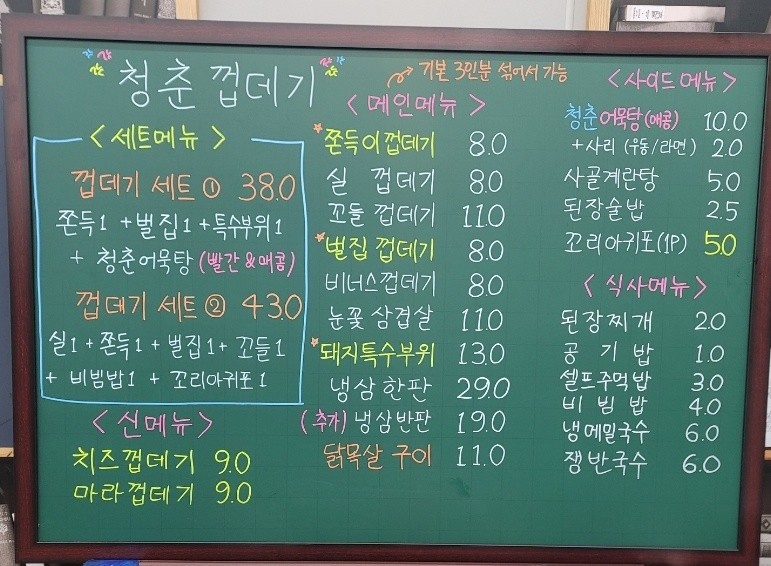 청춘 껍데기
< 세트메뉴 >
껍데기 세트① 38.0
쫀득1 + 벌집1 + 특수부위1
+ 청춘어묵탕 (빨간&매콤)
껍데기 세트② 43.0
실1 + 쫀득1 + 벌집1 + 꼬들1
+ 비빔밥1 + 꼬리아귀포1
< 신메뉴 >
치즈껍데기 9.0
마라껍데기 9.0
기본 3인분 섞어서 가능
< 메인메뉴 >
쫀득이껍데기 8.0
실 껍데기 8.0
꼬들 껍데기 11.0
벌집 껍데기 8.0
비너스껍데기 8.0
눈꽃 삼겹살 11.0
돼지특수부위 13.0
냉삼 한판 29.0
(추가) 냉삼반판 19.0
닭목살 구이 11.0
< 사이드메뉴 >
청춘어묵탕 (매콤) 10.0
+사리 (우동/라면) 2.0
사골계란탕 5.0
된장술밥 2.5
꼬리아귀포(1P) 5.0
< 식사메뉴 >
된장찌개 2.0
공 기 밥 1.0
셀프주먹밥 3.0
비 빔 밥 4.0
냉메밀국수 6.0
쟁반국수 6.0